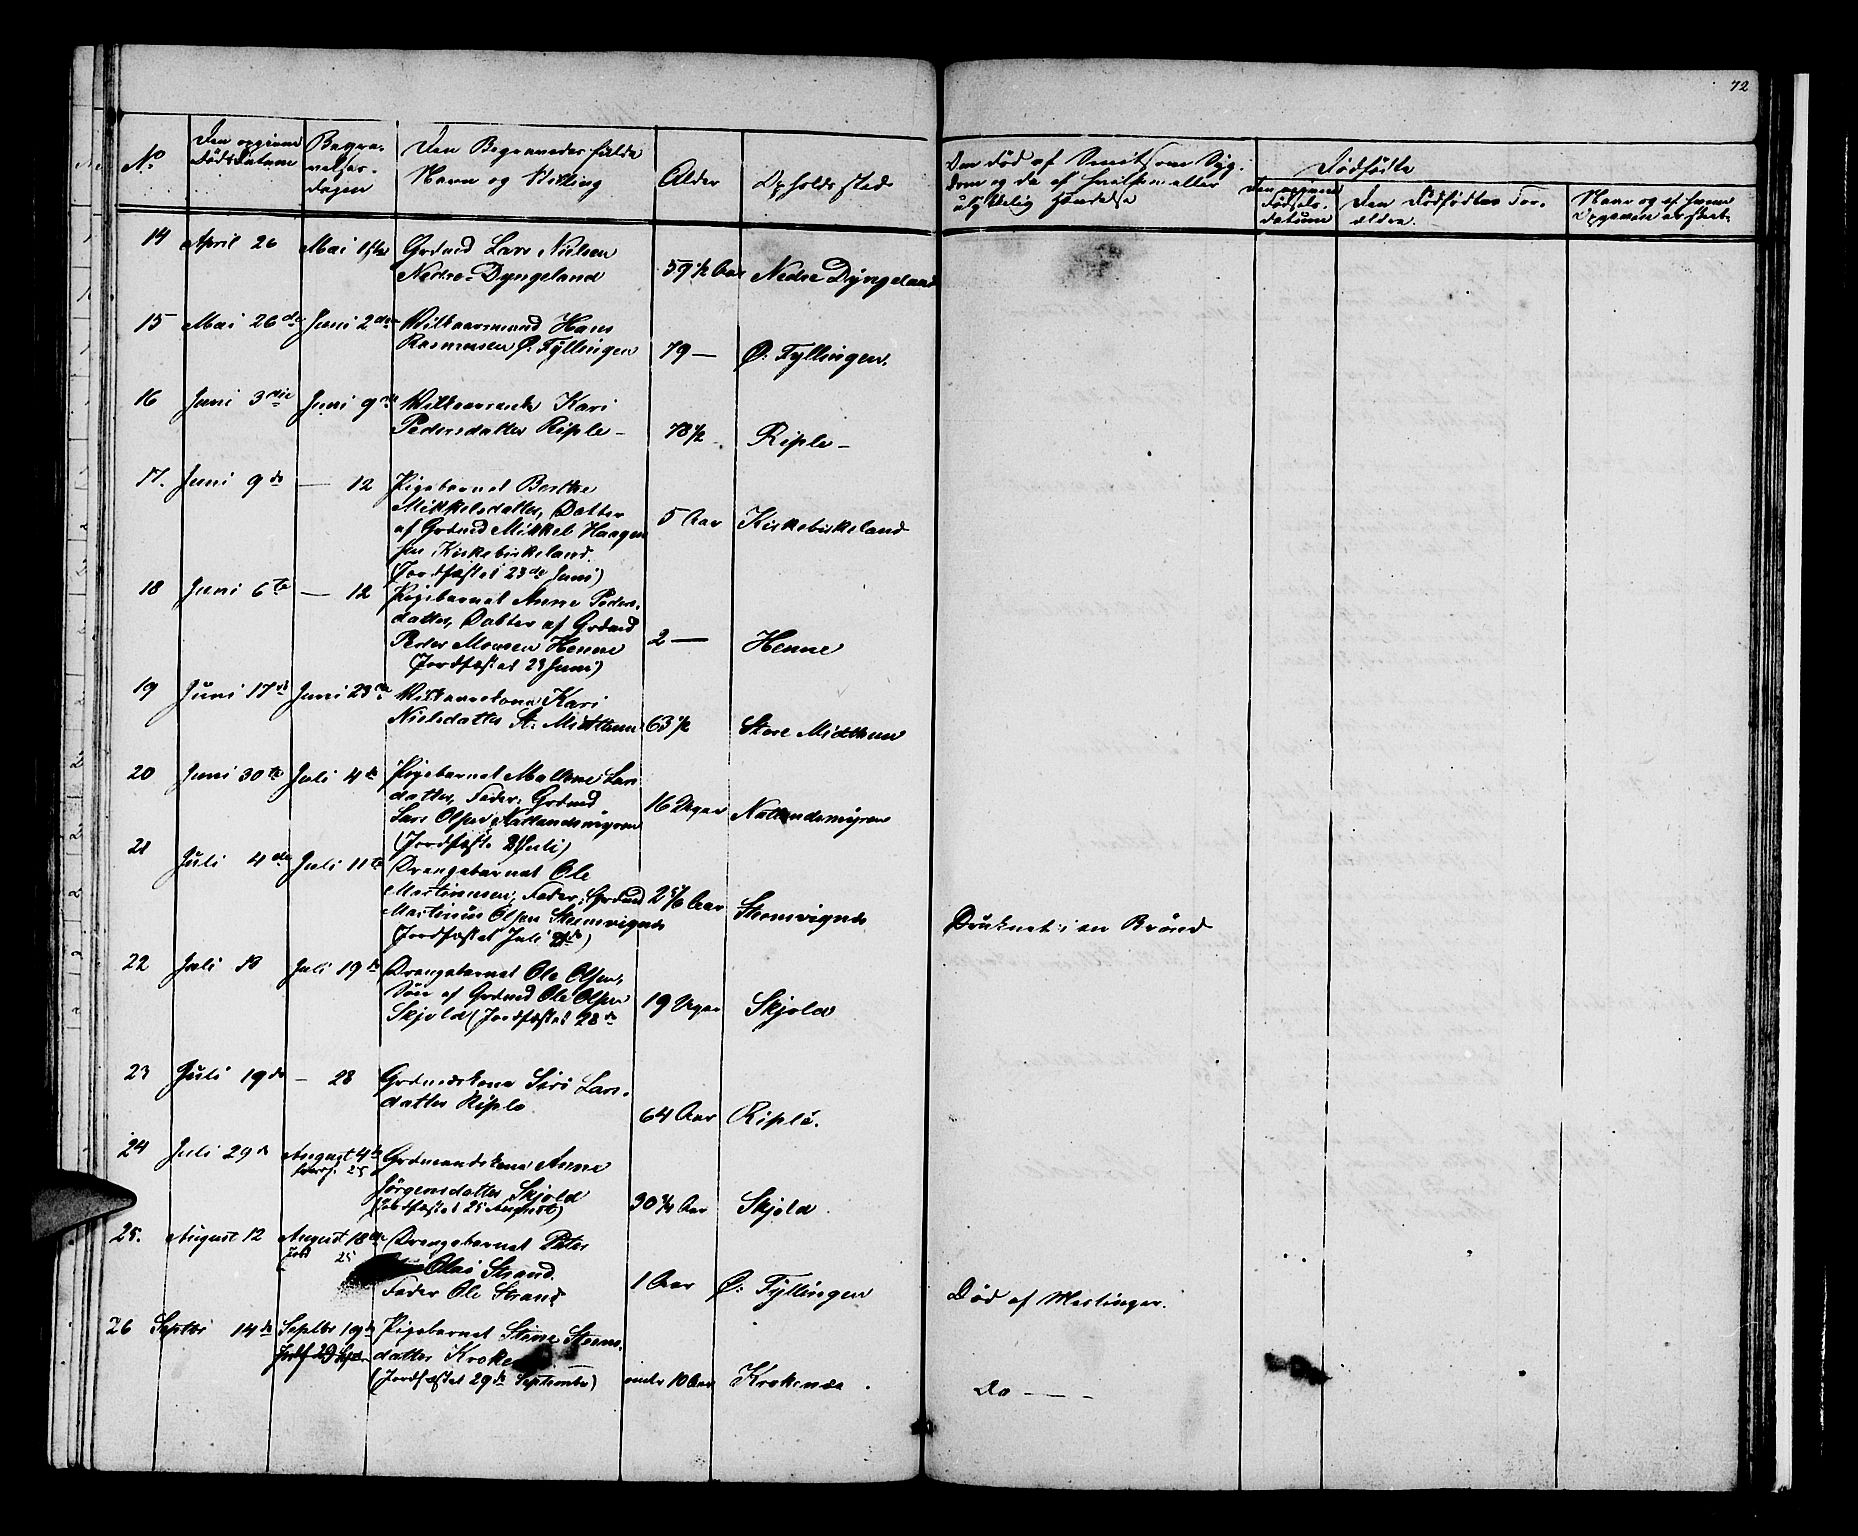 72
No
Den opgivne Dødsdatum
Begravelses-dagen
Den Begravedes fulde Navn og Stilling
Alder
Opholdssted
Om død af Smitsom Syg-
dom og da af hvilken eller
ulykkelig Hændelse
Dødfødte
Den opgivne Fødsels-datum
Den Dødfødtes For-
ældre.
Naar og af hvem
Opgaven er skeet.
14 April 26 Mai 1ste Grdmd Lars Nielsen
Nedre-Dyngeland 59 1/2 Aar Nedre Dyngeland
15 Mai 26de Juni 2den Vilkaarsmand Hans
Rasmussen Ø. Fyllingen 79 — Ø. Fyllingen.
16 Juni 3die Juni 9de Kari
Pedersdatter Riple - 78 1/2 Riple -
17. Juni 9de — 12 Pigebarnet Berthe
Mikkelsdatter, Datter
af Grdmd Mikkel Haagen
sen Kirkebirkeland.
(Jordfæstet 23de Juni) 5 Aar Kirkebirkeland
18 Juni 6te — 12 Pigebarnet Anne Peders-
datter, Datter af Grdmd
Peder Monsen Henne
(Jordfæstet 23 Juni) 2 — Henne
19 Juni 17de Juni 23de Vilkaarskone Kari
Nielsdatter St. Midttun 63 1/2 Store Midttun
20 Juni 30te Juli 4de Pigebarnet Malene Lars
datter, Fader: Grdmd
Lars Olsen Natlandsmyren
(Jordfæstet Juli) 16 Uger Natlandsmyren
21 Juli 4de Juli 11te Drengebarnet Ole
Martinusen, Fader: Grdmd
Martinus Olsen Straumsvignes
(Jordfæstet Juli) Aar Druknet i en Brønd
22 Juli Juli 19de Drengebarnet Ole Olsen,
Søn af Grdmd Ole Olsen
Skjold (Jordfæstet 28de 19 Uger Skjold
23 Juli 19de — 28 Grdmdskone Siri Lars-
datter Riple 64 Aar Riple.
24 Juli 29de August 4de
Jordf. 25 Grdmandskone Anne
Jørgensdatter Skjold
(Jordfæstet 25 August) 30 3/4 Aar Skjold.
25. August 12 August 18de
Jord 25 Drengebarnet Peter
Olai Strand.
Fader Ole Strand 1 Aar Ø. Fyllingen Død af Meslinger.
26 Septbr 14de Septbr 19de
Pigebarnet Stine Steens-
datter Kroke
(Jordfæstet 29de September) under 10 Aar Krokenæs. Do — — —